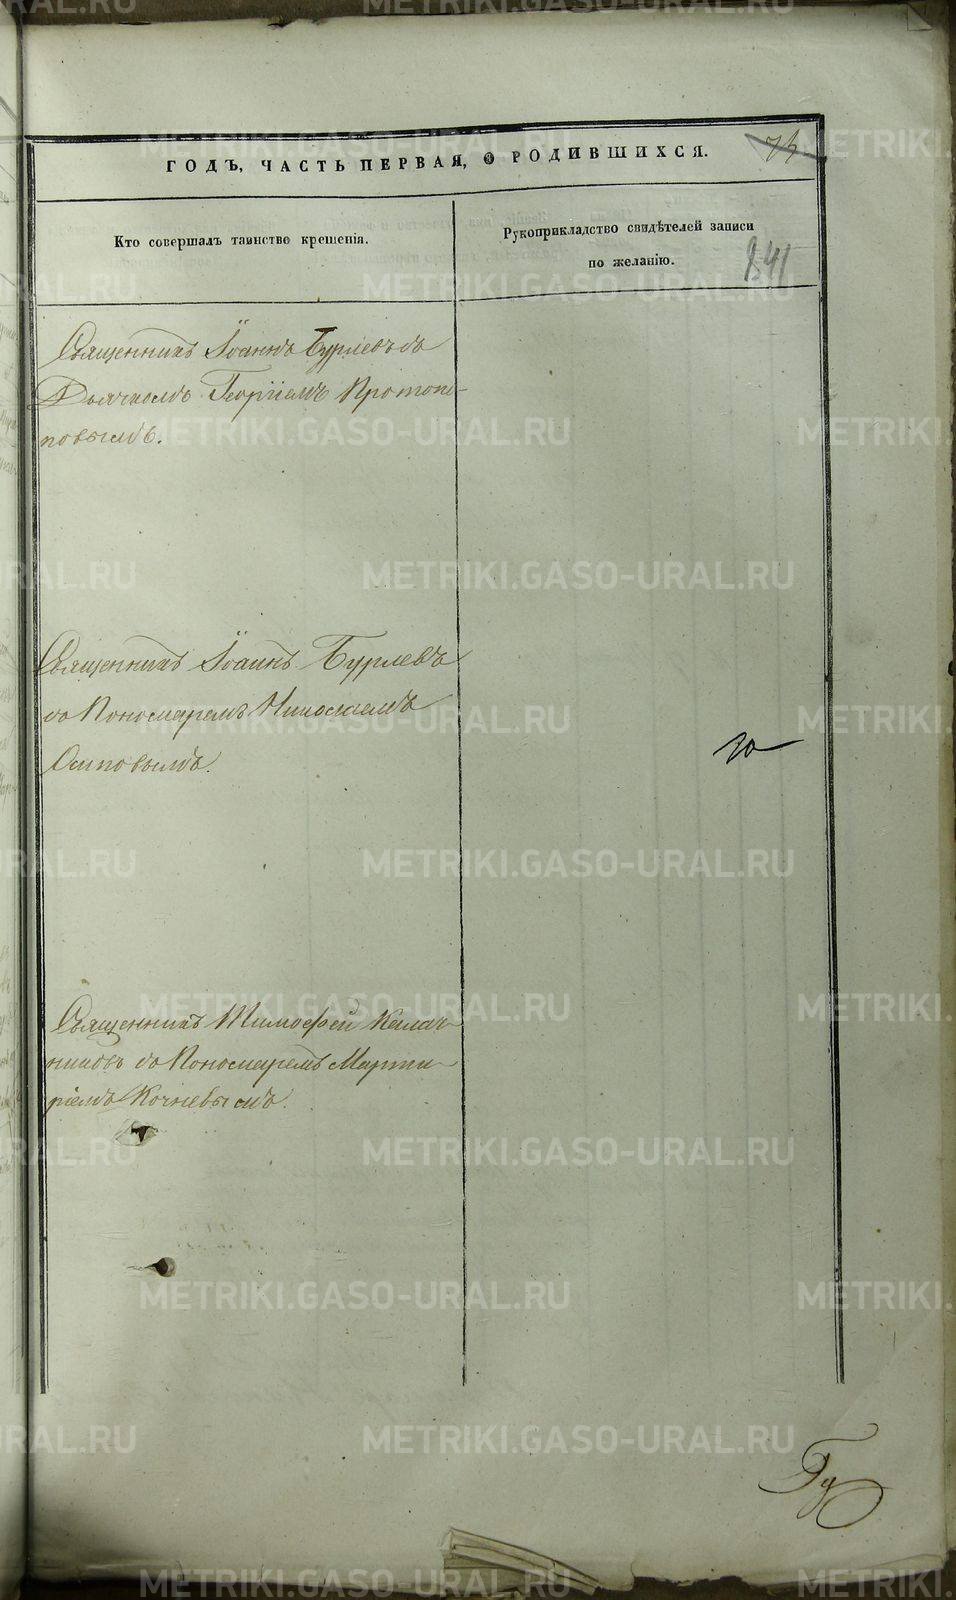 ГОДЪ, ЧАСТЬ ПЕРВАЯ, О РОДИВШИХСЯ.
73
Кто совершалъ таинство крещенія.
Рукоприкладство свидѣтелей записи
по желанію.
841
Священникъ Іоаннъ Бурлевъ съ
Дьячкомъ Георгіемъ Протопо-
повымъ.
Священникъ Іоаннъ Бурлевъ
съ Пономаремъ Николаемъ
Осиповымъ.
Священникъ Тимофей Калач-
никовъ съ Пономаремъ Марти-
ріемъ Кочневымъ.
METRIKI.GASO-URAL.RU